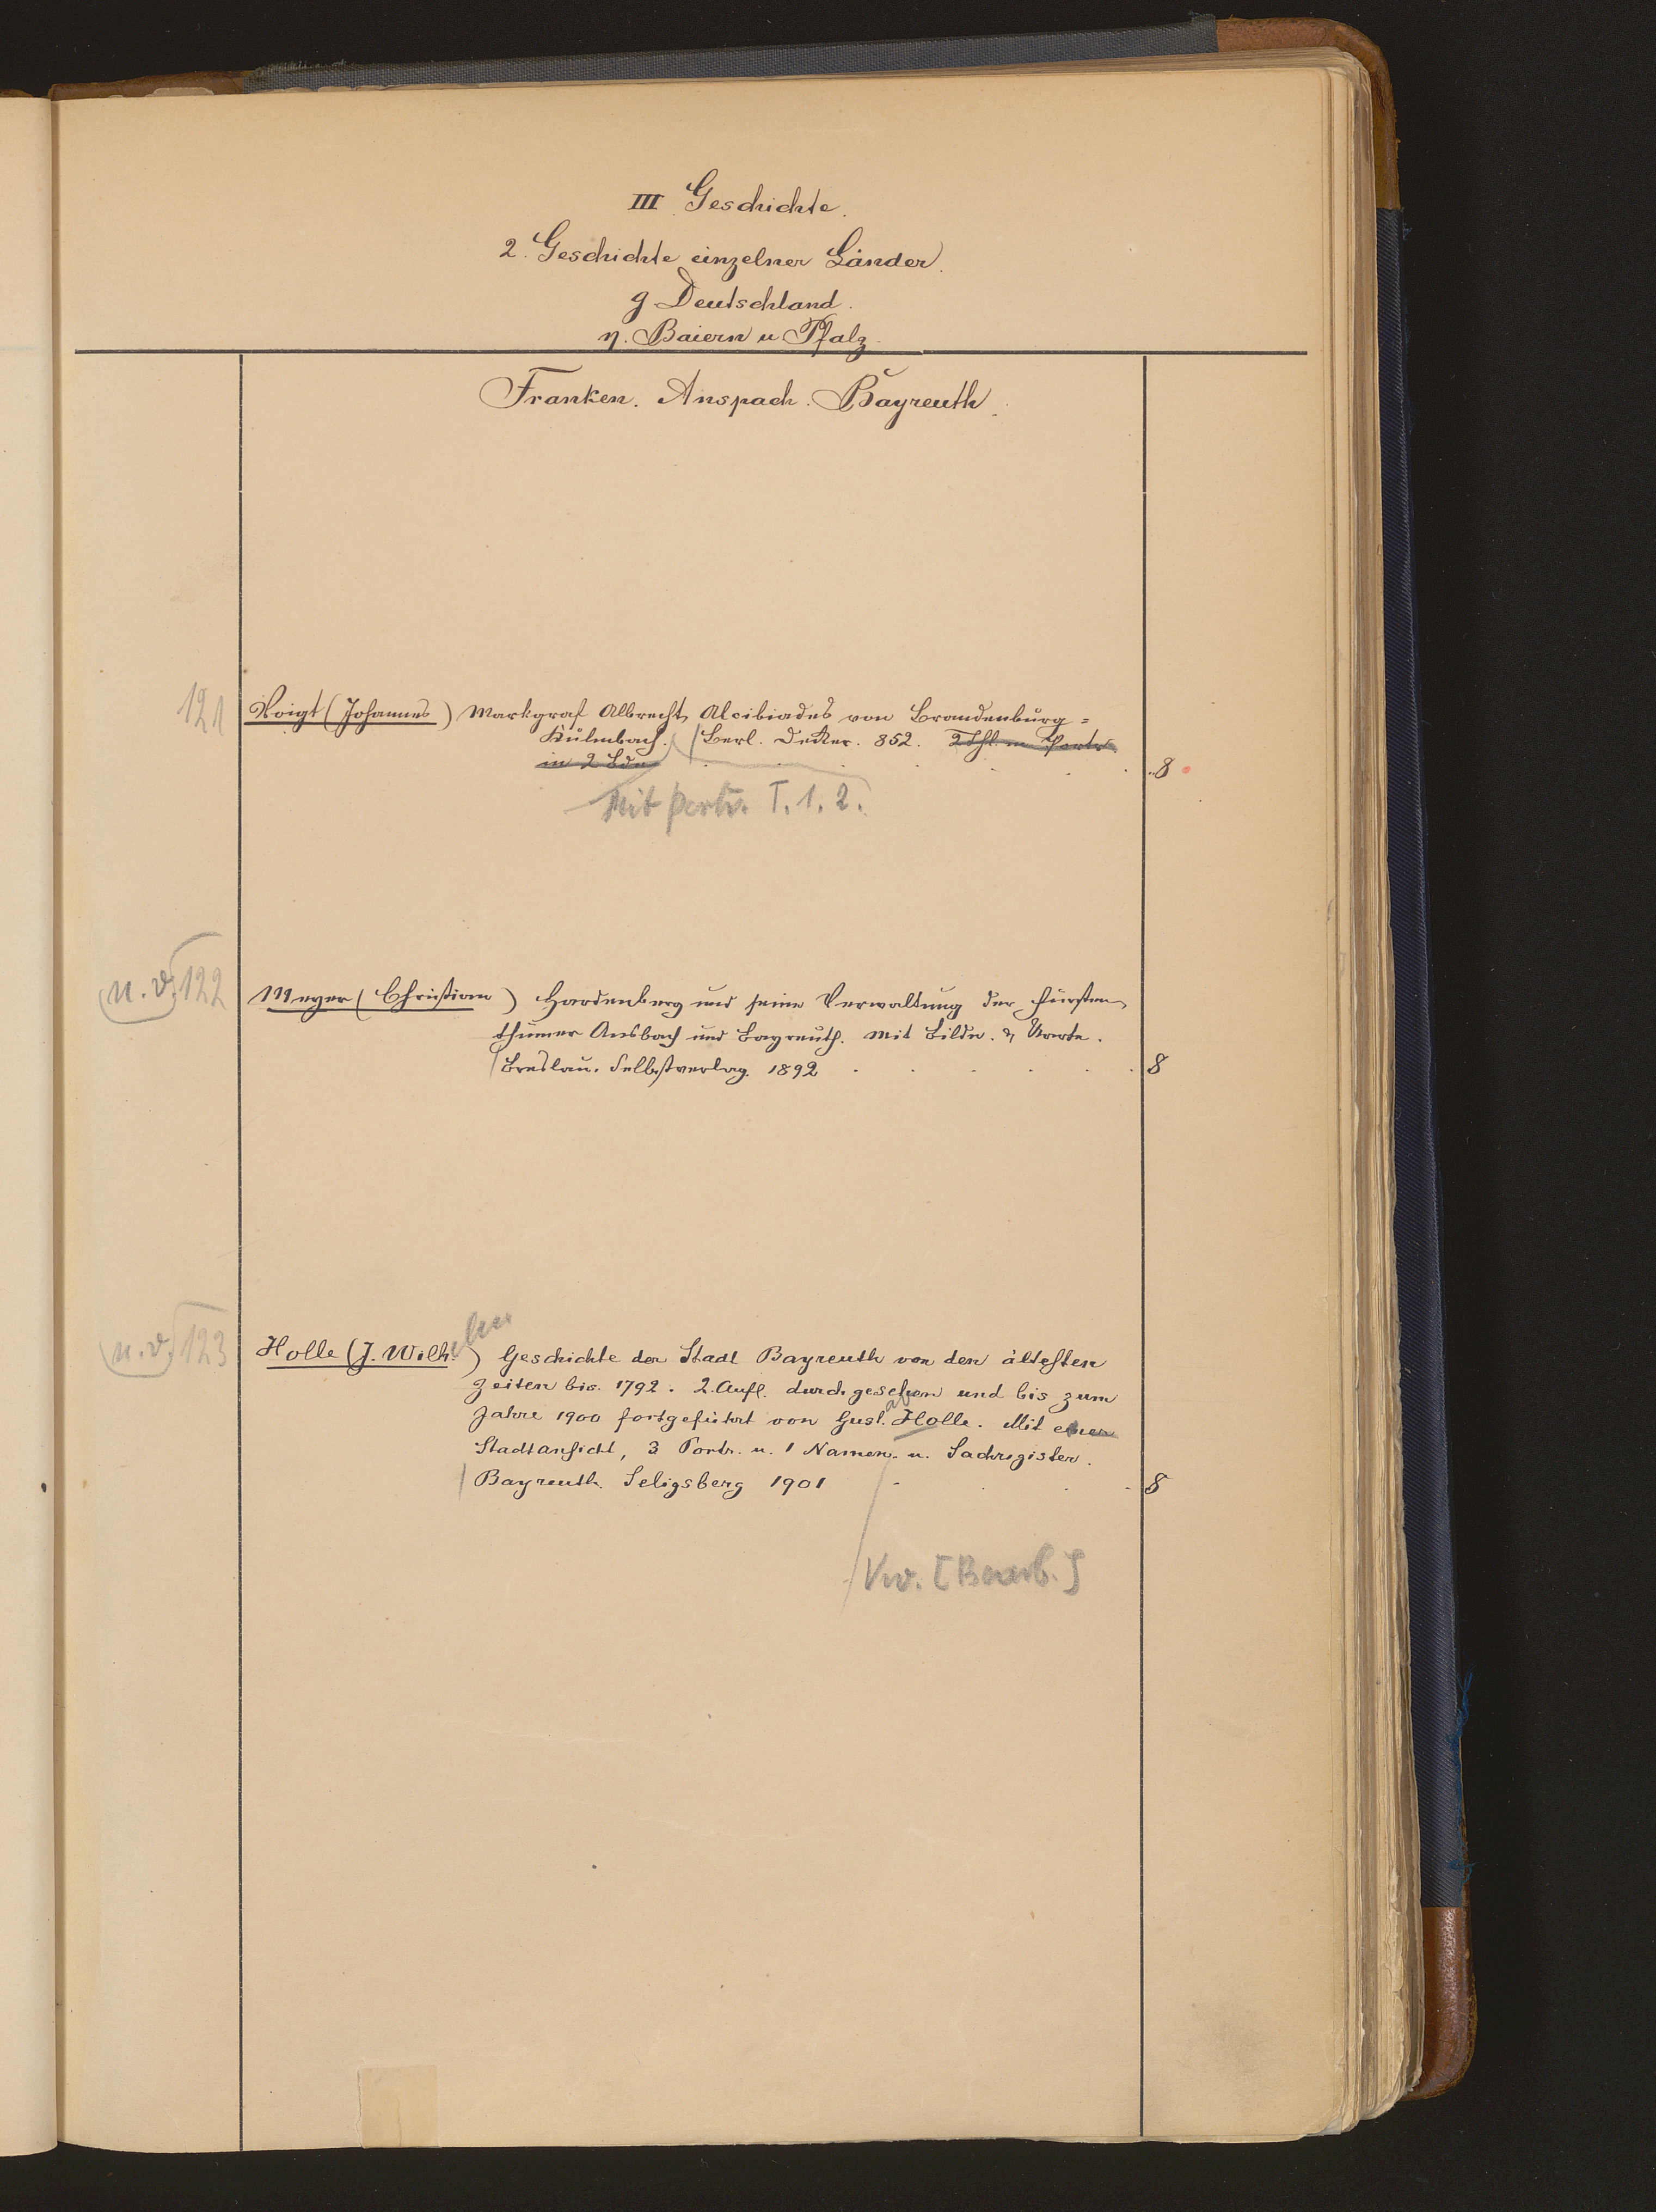 III Geschichte.
2. Geschichte einzelner Länder.
g Deutschland.
η. Baiern u Pfalz.
Franken. Anspach. Bayreuth.
121 Voigt (Johannes) Markgraf Albrecht Alcibiades von Brandenburg=
Kulmbach. Berl. Decker. 852. 2 Thl. m. Portr.
in 2 Bdn 8
Mit Portr. T. 1. 2.
n. v. 122 Meyer (Christian) Hardenberg und seine Verwaltung der Fürsten
thümer Ansbach und Bayreuth. Mit Bildn. & Karte.
Breslau. Selbstverlag. 1892 8
n. v. 123 Holle (J. Wilhelm) Geschichte der Stadt Bayreuth von den ältesten
Zeiten bis 1792. 2. Aufl. durchgesehen und bis zum
Jahre 1900 fortgeführt von Gust. Holle. Mit einer
Stadtansicht, 3 Portr. u. 1 Namen- u. Sachregister.
Bayreuth. Seligsberg 1901 8
[Bearb.]